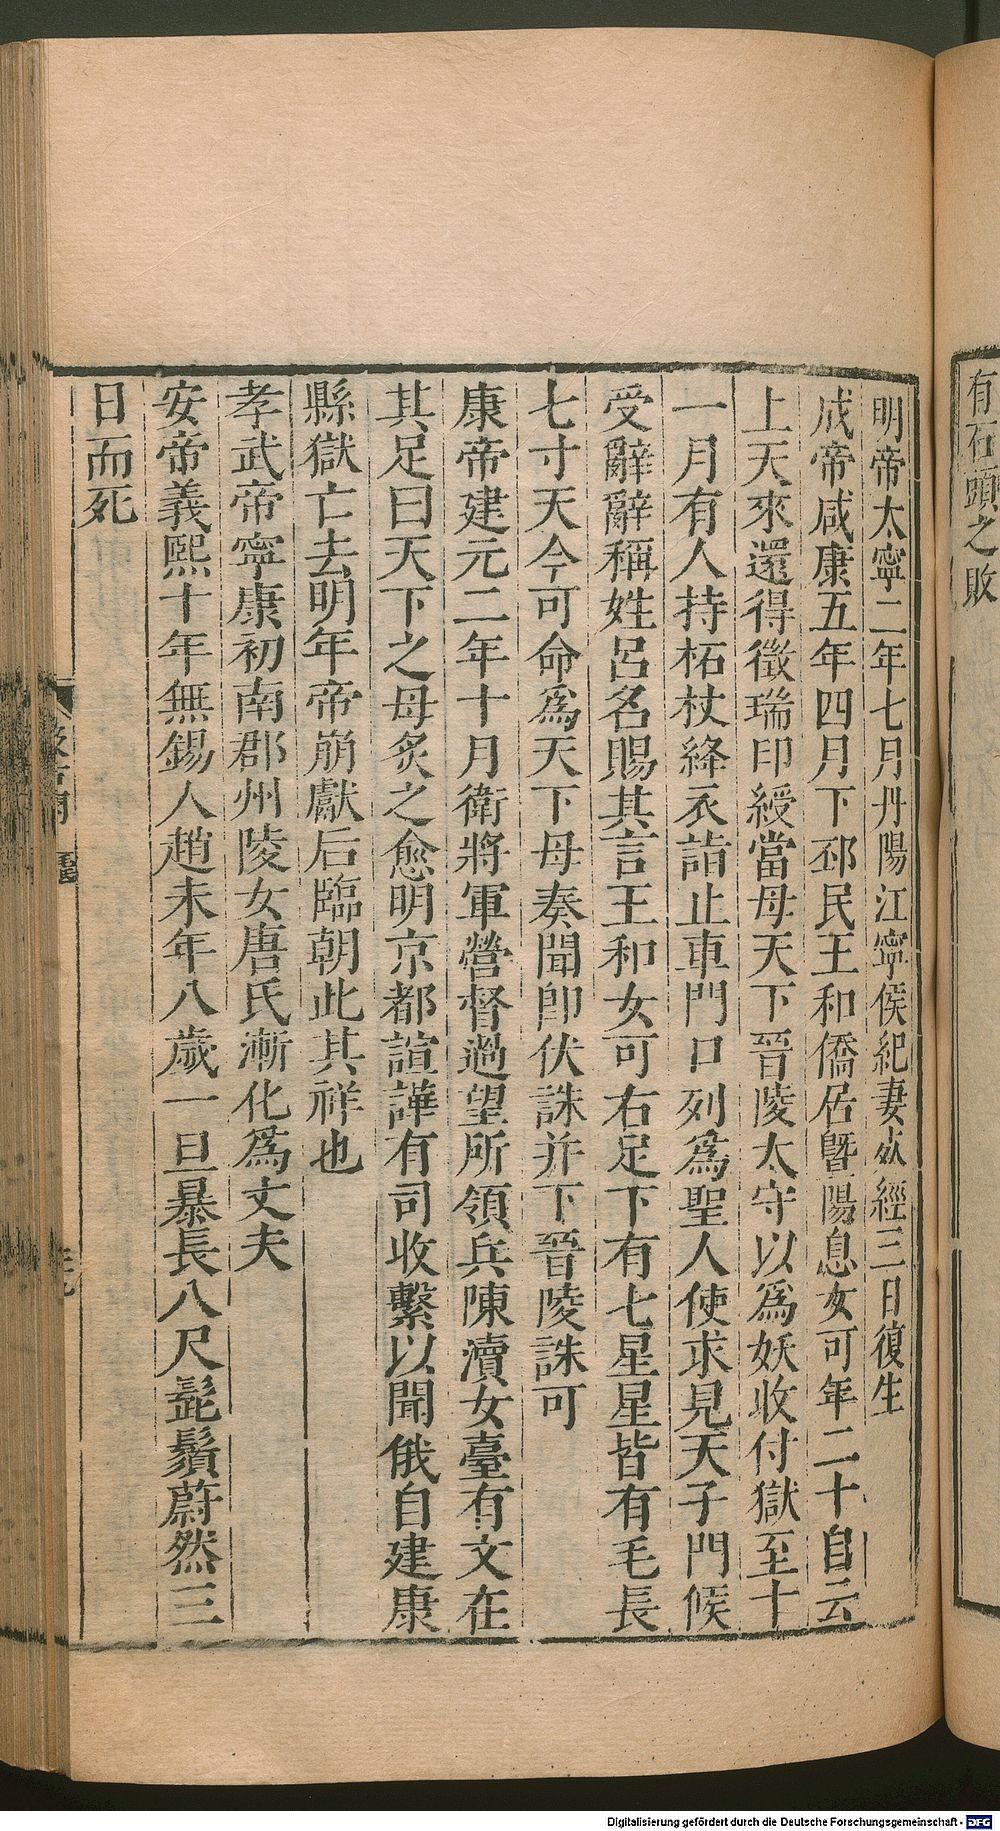 有石頭之敗
明帝太寧二年七月丹陽江寧侯紀妻死經三日復生
成帝咸康五年四月下邳民王和僑居暨陽息女可年二十自云
上天來還得徵瑞印綬當母天下晉陵太守以爲妖收付獄至十
一月有人持柘杖絳衣詣止車門口列爲聖人使求見天子門候
受辭辭稱姓呂名賜其言王和女可右足下有七星星皆有毛長
七寸天今可命爲天下母奏聞卽伏誅并下晉陵誅可
康帝建元二年十月衛將軍營督過望所領兵陳瀆女臺有文在
其足曰天下之母炙之愈明京都諠譁有司收繫以聞俄自建康
縣獄亡去明年帝崩獻后臨朝此其祥也
孝武帝寧康初南郡州陵女唐氏漸化爲丈夫
安帝義熙十年無錫人趙未年八歲一旦暴長八尺髭鬚蔚然三
日而死
Digitalisierung gefördert durch die Deutsche Forschungsgemeinschaft - DFG